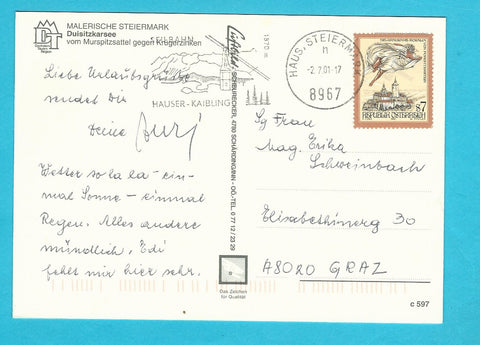 MALERISCHE STEIERMARK
Duisitzkarsee
vom Murspitzsattel gegen Krügerzinken
Liebe Urlaubsgrüße
sendet Dir
Deine
Wetter so la la - ein-
mal Sonne - einmal
Regen. Alles andere
mündlich, Edi
fehlt mir hier sehr.
SEILBAHN
1870 m
HAUSER-KAIBLING
HAUS, STEIERMARK
-2.7.01-17
8967
SCHÄRDING/INN - OÖ-TEL. 0 77 12 / 23 29
Das Zeichen
für Qualität
S 7
REPUBLIK ÖSTERREICH
Sg Frau
Mag. Erika
Schweinbach
Elisabethinerg 30
A8020 GRAZ
c 597